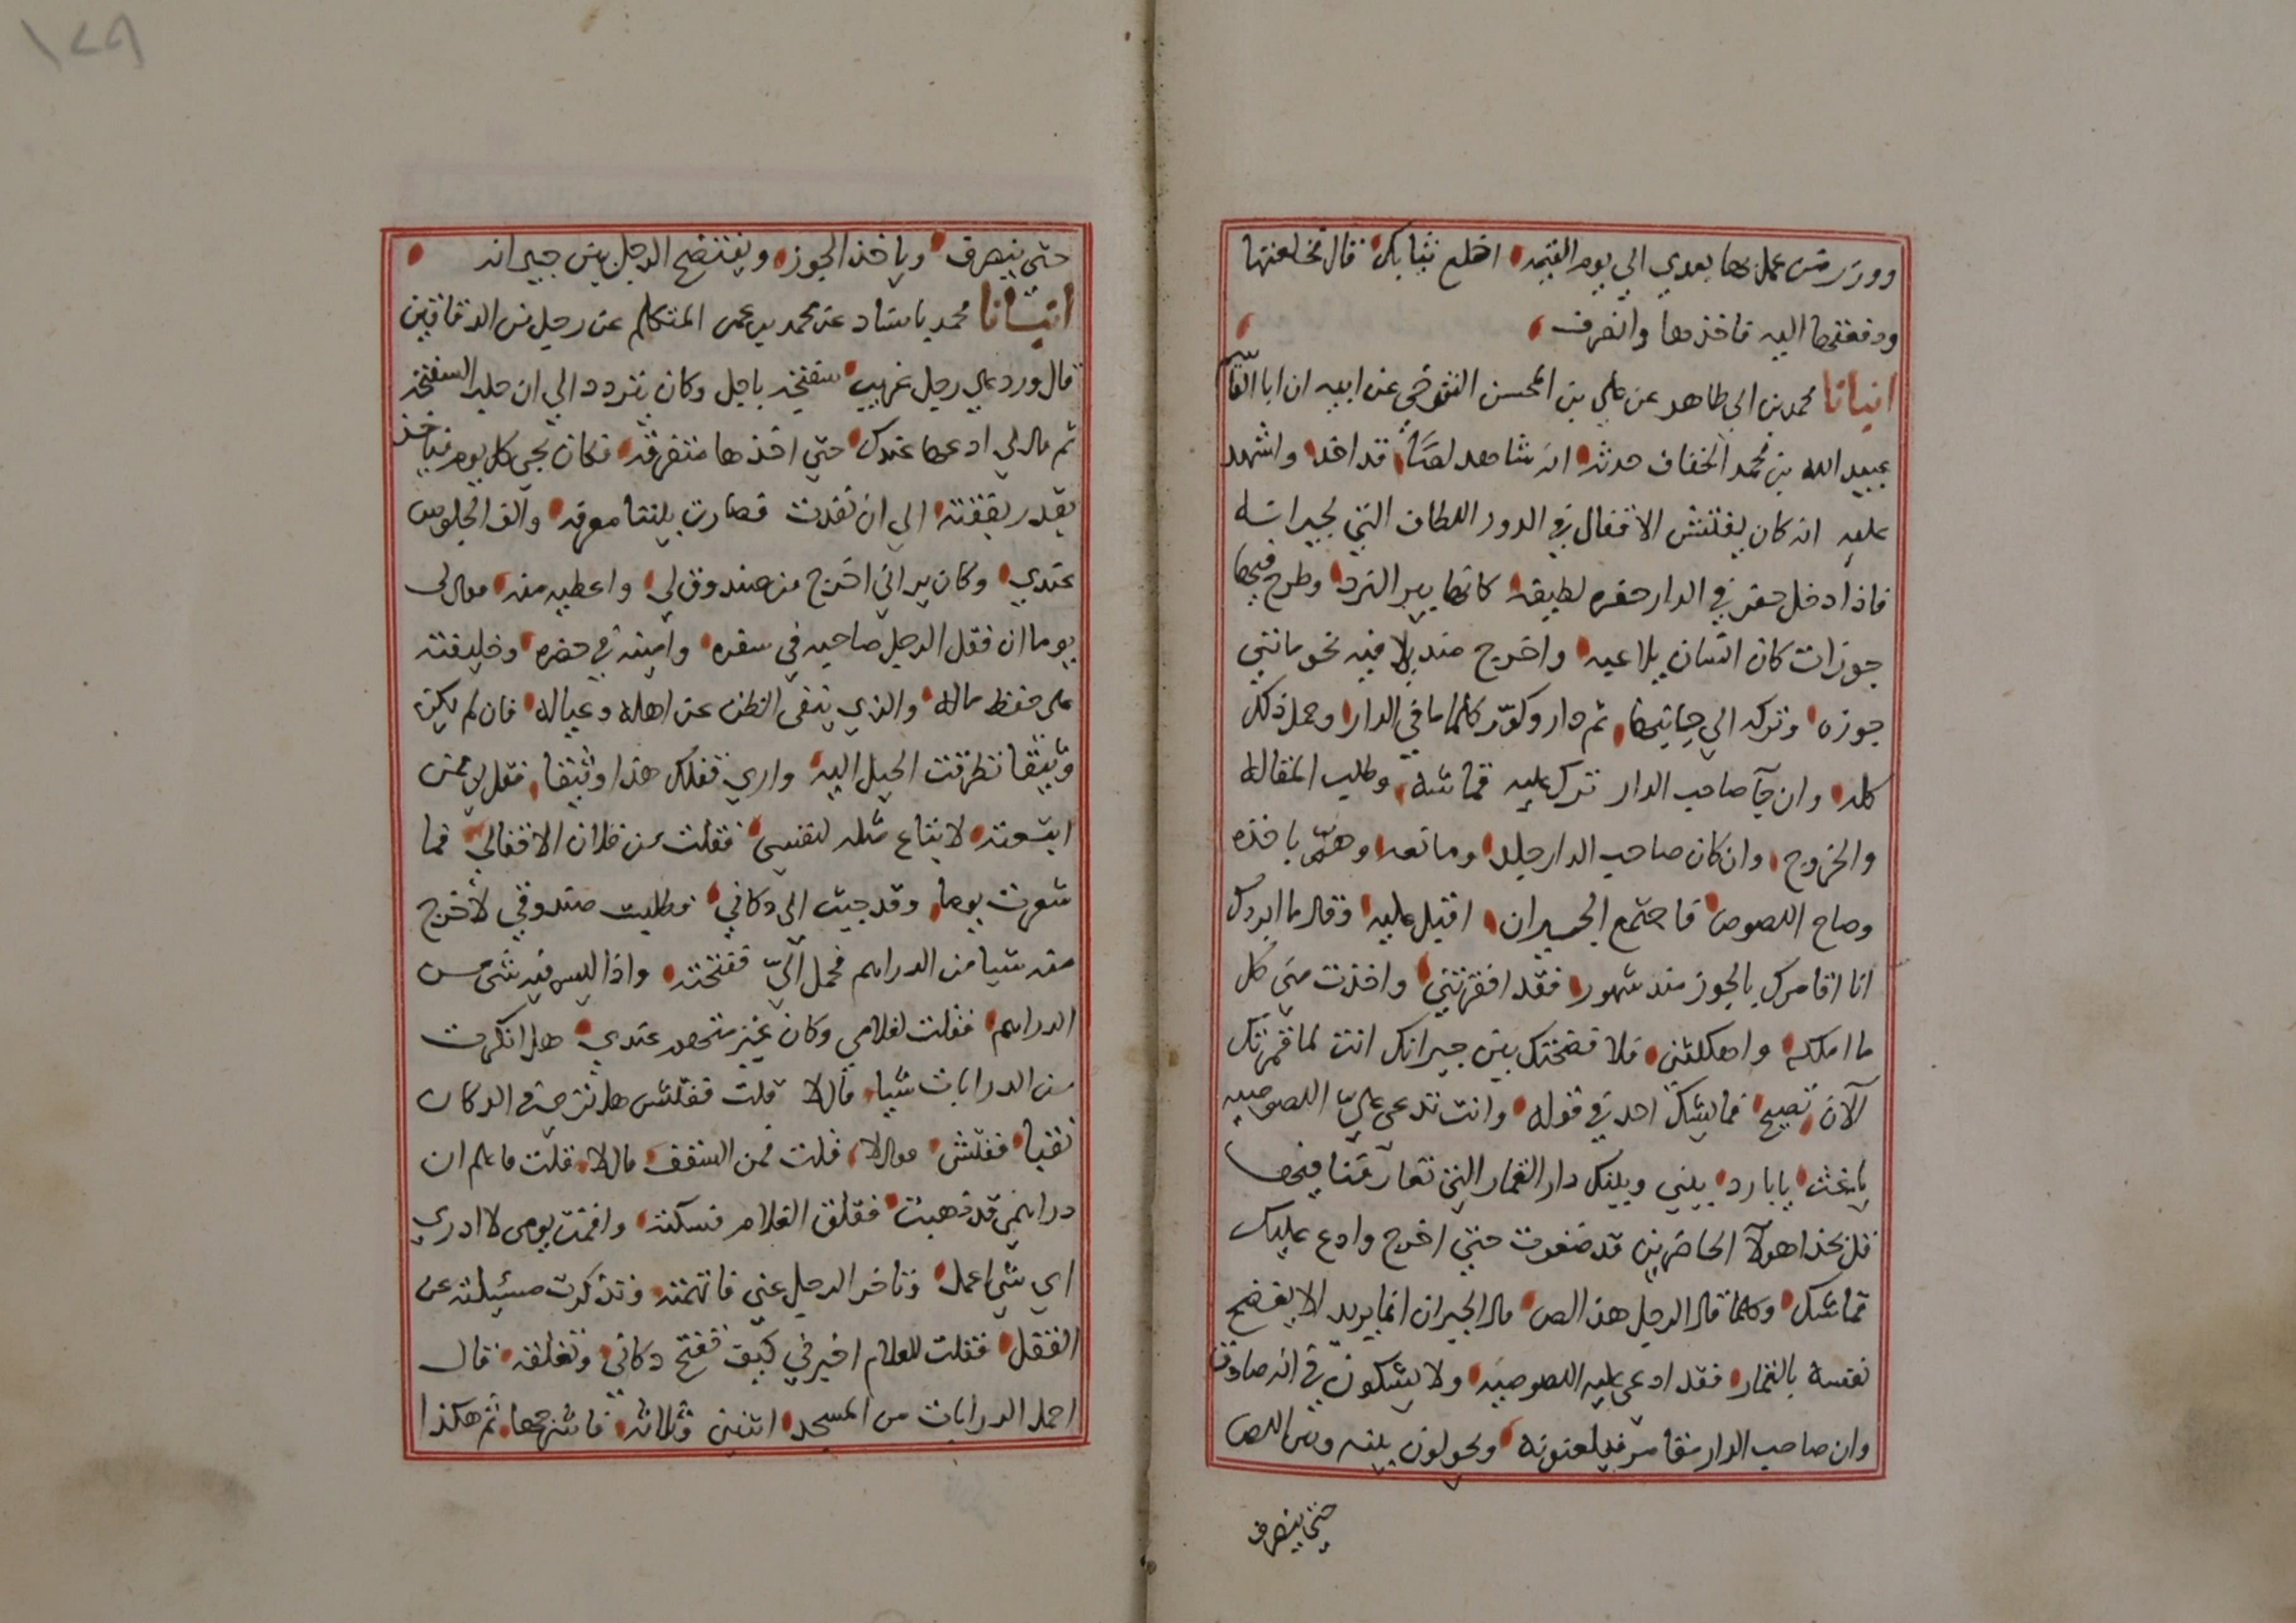 ووزر من عمل بها بعدي الي يوم القيمه اخلع ثيابك قال فخلعتها
ودفعتها اليه فاخذها وانصرف
انبانا محمد بن ابي طاهر عن علي بن المحسن التنوخي عن ابيه ان ابا القاسم
عبيد الله بن محمد الخفاف حدثه انه شاهد لصا قد اخذ واشهد
عليه انه كان يفتش الاقفال في الدور اللطاف التي لجيرانه
فاذا دخل حفر في الدار حفره لطيفه كانها بير النرد وطرح فيها
جوزات كان انسان يلاعبه واخرج منديلا فيه نحو مائتي
جوزه وتركه الي جانبها ثم دار وكور كلما في الدار وحمل ذلك
كله وان جآ صاحب الدار ترك عليه قماشه وطلب المقاله
والخروج وان كان صاحب الدار جلدا ومانعه وهم باخذه
وصاح اللصوص فاجتمع الجيران اقبل عليه وقال ما ابردك
انا اقامرك بالجوز منذ شهور فقد افقرتني واخذت مني كل
ما املكه واهلكتني فلا فضحتك بين جيرانك انت لما قمرتك
الآن تصيح فما يشك احد في قوله وانت تدعي علي اللصوصيه
يا غث يا بارد بيني وبينك دار القمار التي تعارفنا فيها
قل بحذا هولآ الحاضرين قد ضغوت حتي اخرج وادع عليك
قماشك وكلما قال الرجل هذا لص قال الجيران انما يريد الا يفضح
نفسه بالقمار فقد ادعي عليه اللصوصيه ولا يشكون في انه صادق
وان صاحب الدار مقامر فيلعنونه ويحولون بينه وبين اللص
حتي ينصرف
١٤٩
حتي ينصرف وياخذ الجوز ويفتضح الرجل بين جيرانه
انبانا محمد باسناد عن محمد بن عمر المتكلم عن رجل من الدقاقين
قال ورد علي رجل غريب سفتجه باجل وكان يتردد الي ان حلت السفتجه
ثم قال لي ادعها عندك حتي اخذها متفرقه فكان يجي كل يوم فياخذ
بقدر نفقته الي ان نفدت فصارت بيننا معرفه والف الجلوس
عندي وكان يراني اخرج من صندوق لي واعطيه منه فقال لي
يوما ان قفل الرجل صاحبه في سفره وامينه في حضره وخليفته
علي حفظ ماله والذي ينفي الظن عن اهله وعياله فان لم يكن
وثيقا تطرقت الحيل اليه واري قفلك هذا وثيقا فقل لي ممن
ابتعته لابتاع مثله لنفسي فقلت من فلان الاقفالي فما
شعرت يوما وقد جيت الي دكاني فطلبت صندوقي لاخرج
منه شيا من الدراهم فحمل الي ففتحته واذا ليس فيه شي من
الدراهم فقلت لغلامي وكان غير متهم عندي هل انكرت
من الدرابات شيا قال لا قلت ففتش هل تري في الدكان
نقبا ففتش فقال لا قلت فمن السقف قال لا فقلت فاعلم ان
دراهمي قد ذهبت فقلق الغلام فسكنته واقمت يومي لا ادري
اي شي اعمل وتاخر الرجل عني فاتهمته وتذكرت مسيلته عن
القفل فقلت للغلام اخبرني كيف تفتح دكاني وتغلقه قال
احمل الدرابات من المسجد اثنين وثلاثه فاشرجها ثم هكذا